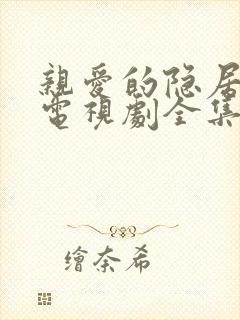 親愛的隐居
電視劇全集
繪奈希